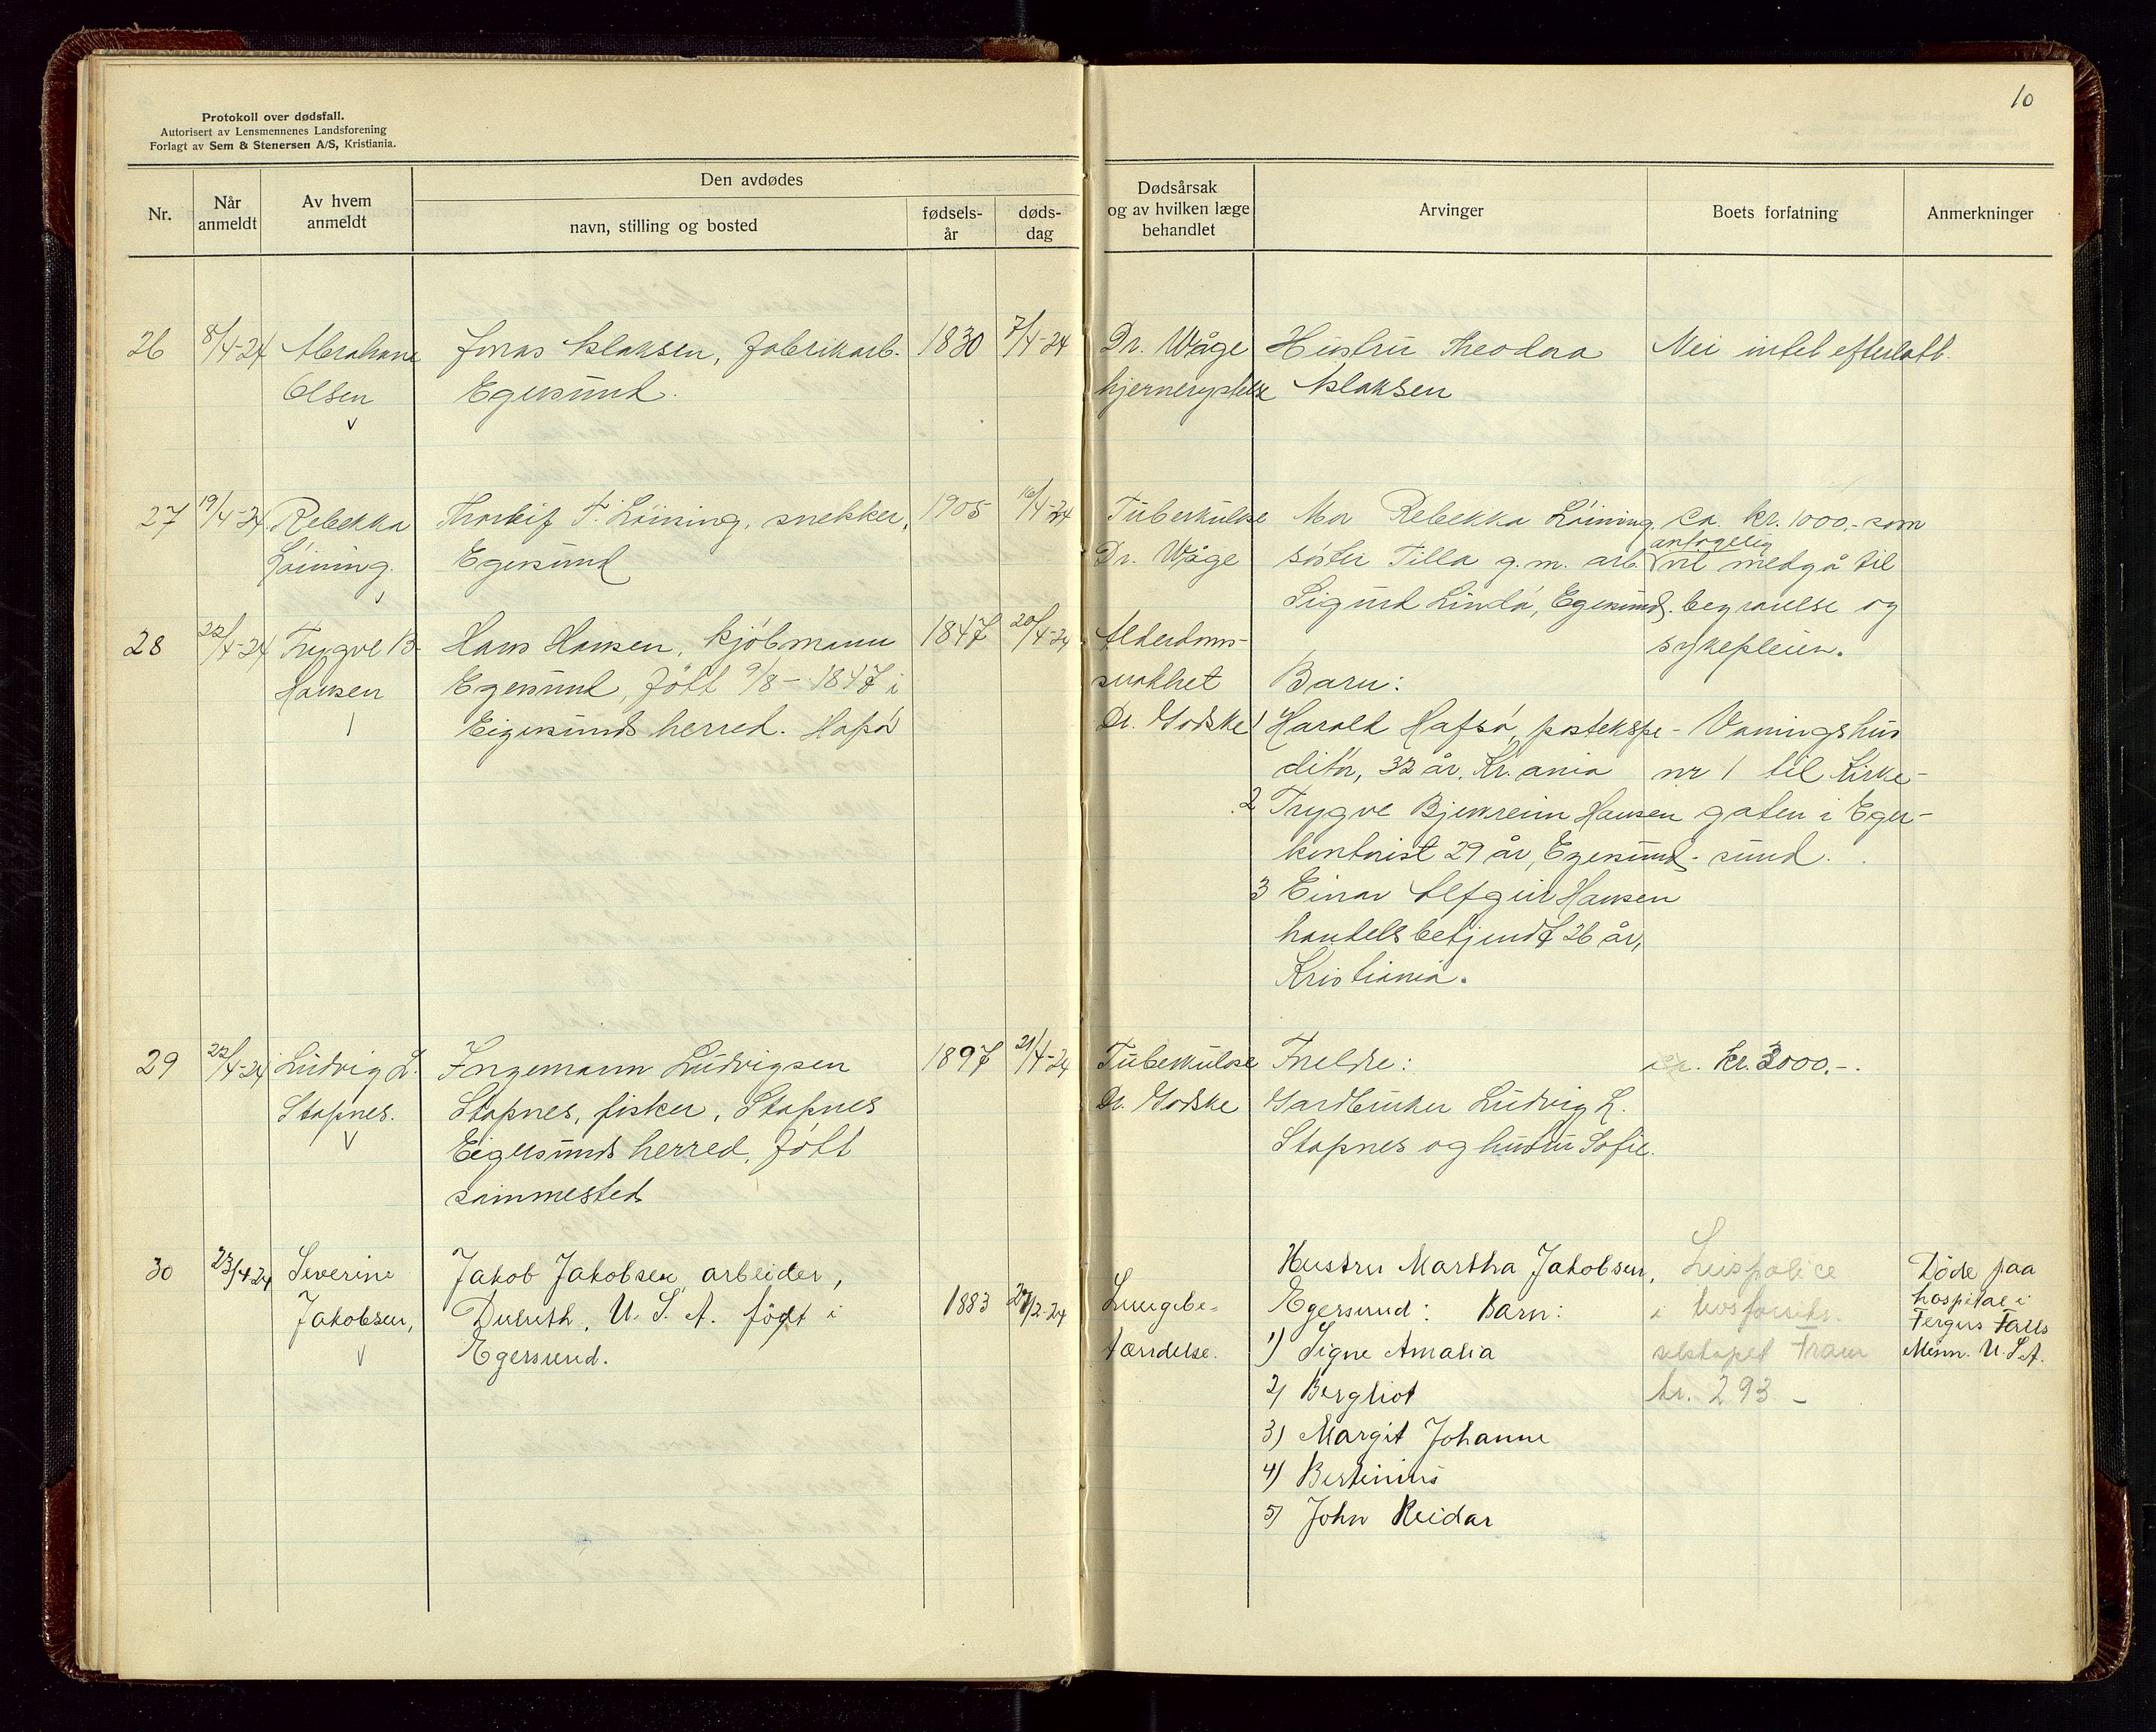 10
Protokoll over dødsfall.
Autorisert av Lensmennenes Landsforening
Forlagt av Sem & Stenersen A/S, Kristiania.
Nr.
Når anmeldt
Av hvem anmeldt
Den avdødes
navn, stilling og bosted
fødsels-år
døds-dag
Dødsårsak og av hvilken læge behandlet
Arvinger
Boets forfatning
Anmerkninger
26 8/4-24 Abrahane Jonas Aslaksen, fabrikarb. 1830 7/4-24 Dr. Wåge Hustru Theodora Nei intet efterlatt.
Olsen Egersund. hjernerystelse Aslaksen
27 19/4-24 Rebekka Thorleif T. Löining, snekker, 1905 16/4-24 Tuberkulose Mor Rebekka Löining. ca. kr. 1000.- som
antagelig
Löining. Egersund Dr. Wåge söster Tilla g.m. arb. vil medgå til
Sigurd Lindö, Egersund. begravelse og
sykepleien.
28 22/4-24 Trygve B. Hans Hansen, kjöbmann 1847 20/4-24 Alderdoms-
Hansen Egersund, född 9/8-1847 i svakhet Barn:
Eigersunds herred. Hafsö Dr. Godske 1 Harald Hafsö, postekspe- Vaningshus
ditör, 32 år, Kr.ania nr 1 til Kirke-
2 Trygve Bjerkreim Hansen gaten i Eger-
kontorist 29 år, Egersund. sund.
3 Einar Alfgeir Hansen
handelsbetjent 26 år,
Kristiania.
29 22/4-24 Ludvig L. Ingemann Ludvigsen 1897 21/4-24 Tuberkulose Foreldre: kr. 3000.-.
Stapnes. Stapnes, fisker, Stapnes Dr. Godske Gardbruker Ludvig L.
Eigersunds herred, född Stapnes og hustru Sofie.
sammested
30 23/4 24 Severine Jakob Jakobsen, arbeider, Hustru Martha Jakobsen, Livspolice Döde paa
Jakobsen, Duluth, U. S. A. födt i 1883 2-24 Lungebe- Egersund: Barn: i livsforsikr. hospital i
Fergus Falls
Egersund. tændelse. 1) Signe Amalia selskapet Fram Minn. U.S.A.
2) Bergliot kr. 293 -
3) Margit Johanne
4) Bertinius
5) John Reidar